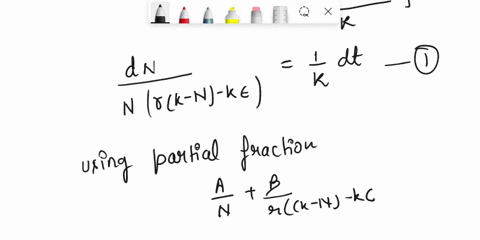 K
dN / N(r(k-N)-kE) = 1/K dt — ①
using partial fraction
A/N + B/r((k-N)-kC